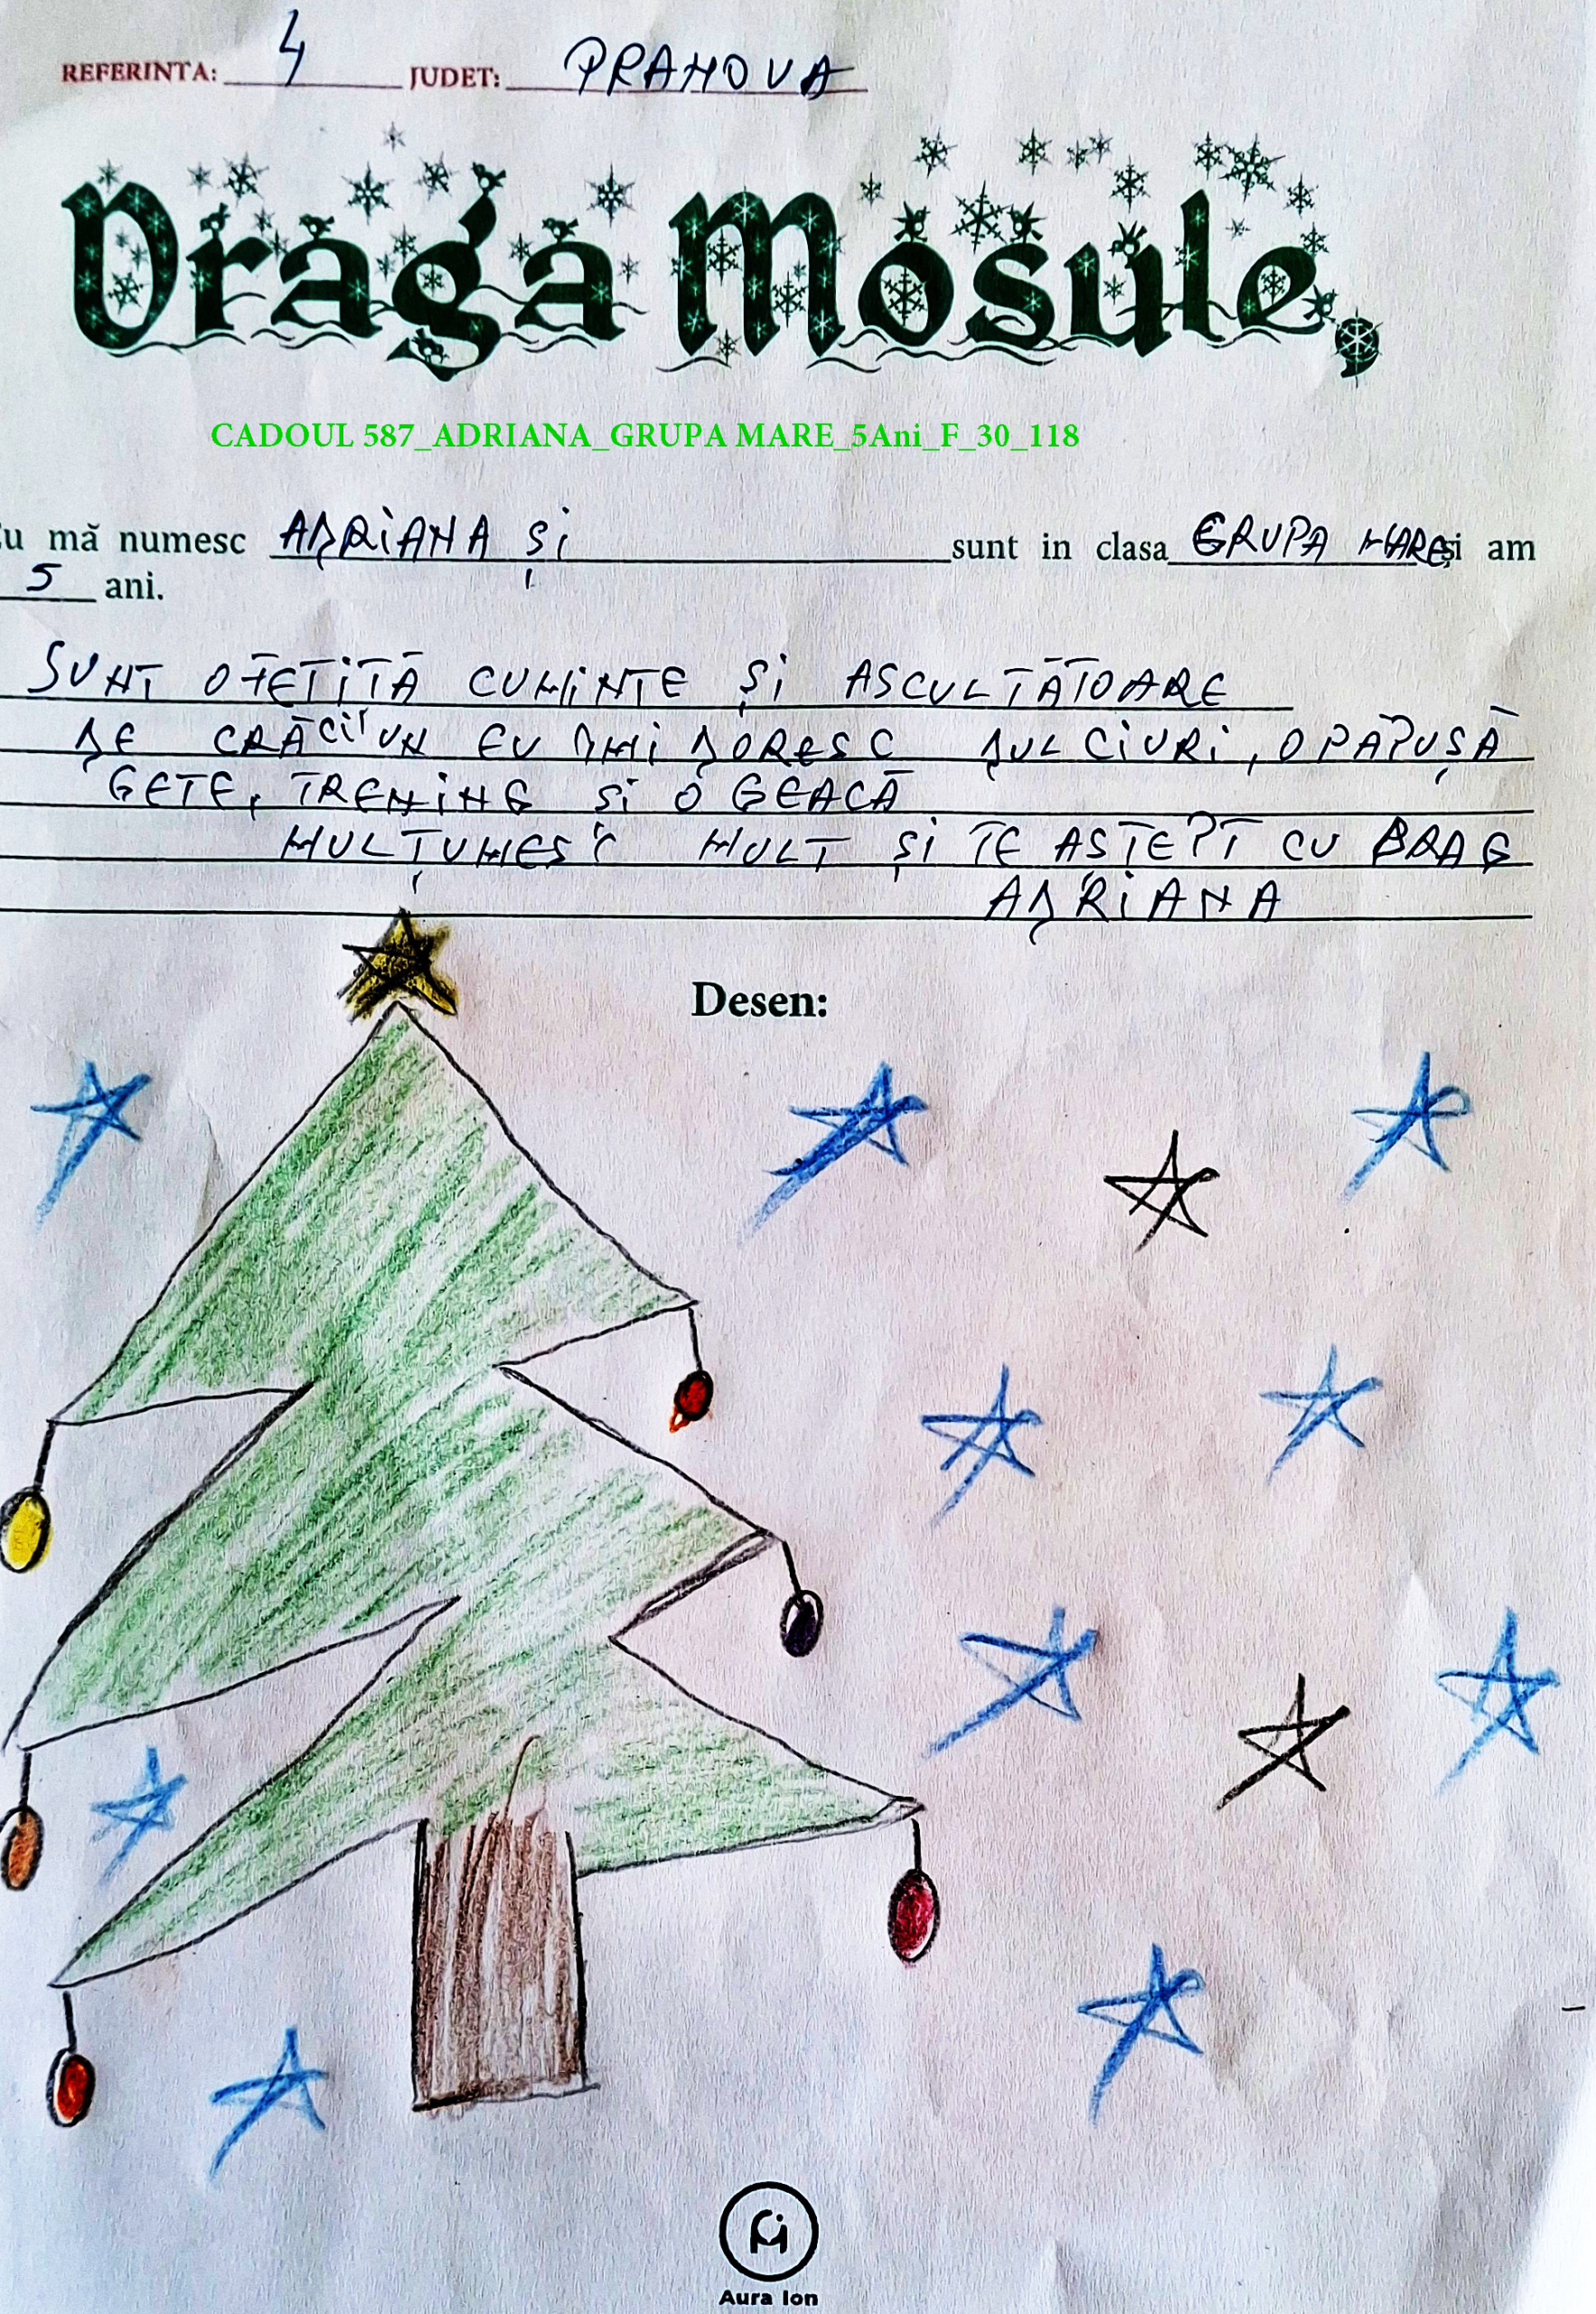 REFERINTA: 4 JUDET: PRAHOVA
Draga Mosule,
CADOUL 587_ADRIANA_GRUPA MARE_5Ani_F_30_118
Eu mă numesc ADRIANA ȘI sunt in clasa GRUPA MARE și am
5 ani.
SUNT O FETIȚĂ CUMINTE ȘI ASCULTĂTOARE
DE CRĂCIUN EU ÎMI DORESC DULCIURI, O PĂPUȘĂ
GETE, TRENING ȘI O GEACĂ
MULȚUMESC MULT ȘI TE AȘTEPT CU DRAG
ADRIANA
Desen:
Aura Ion